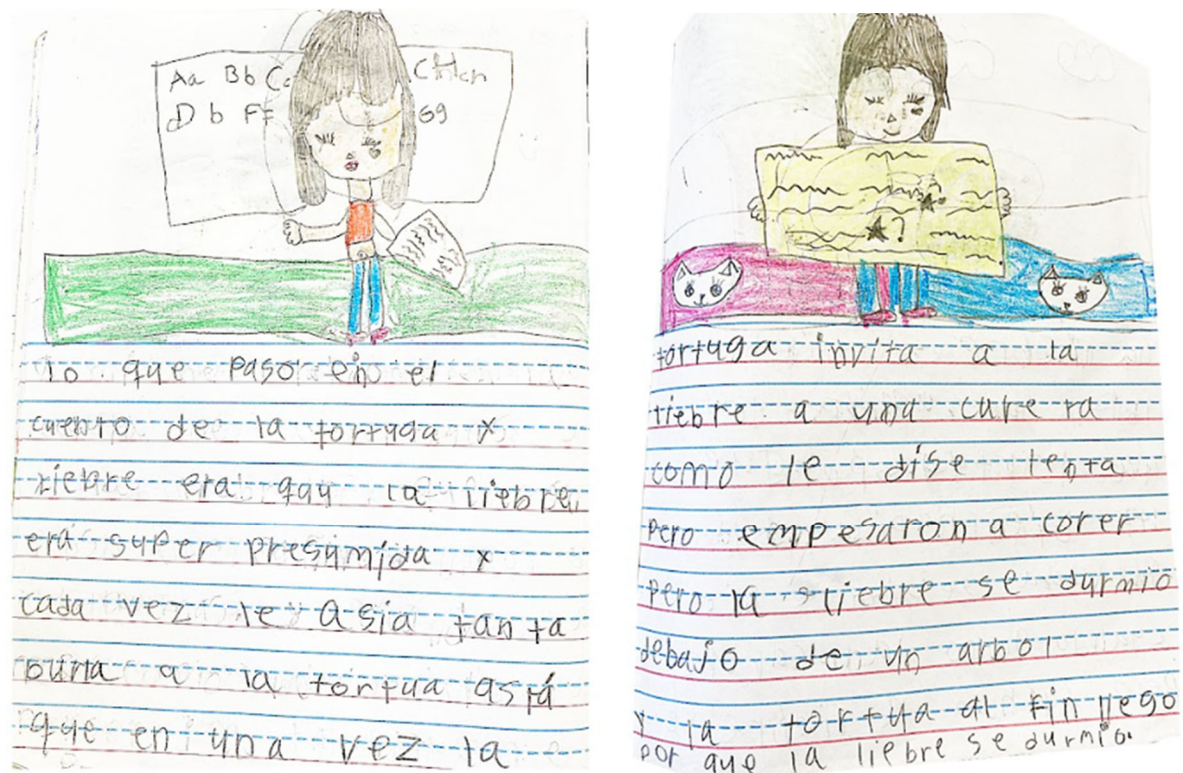 Aa Bb Cc CHch
D b Ff Gg
lo que paso en el
cuento de la tortuga y
liebre era quy la liebre
era super presumida y
cada vez le Asia tanta
burla a la tortua astá
que en una vez la
tortuga invita a la
liebre a una curera
como le dise lenta
pero empesaron a corer
pero la liebre se durmio
debajo de un arbol
y la tortua al fin llego
por que la liebre se durmio.